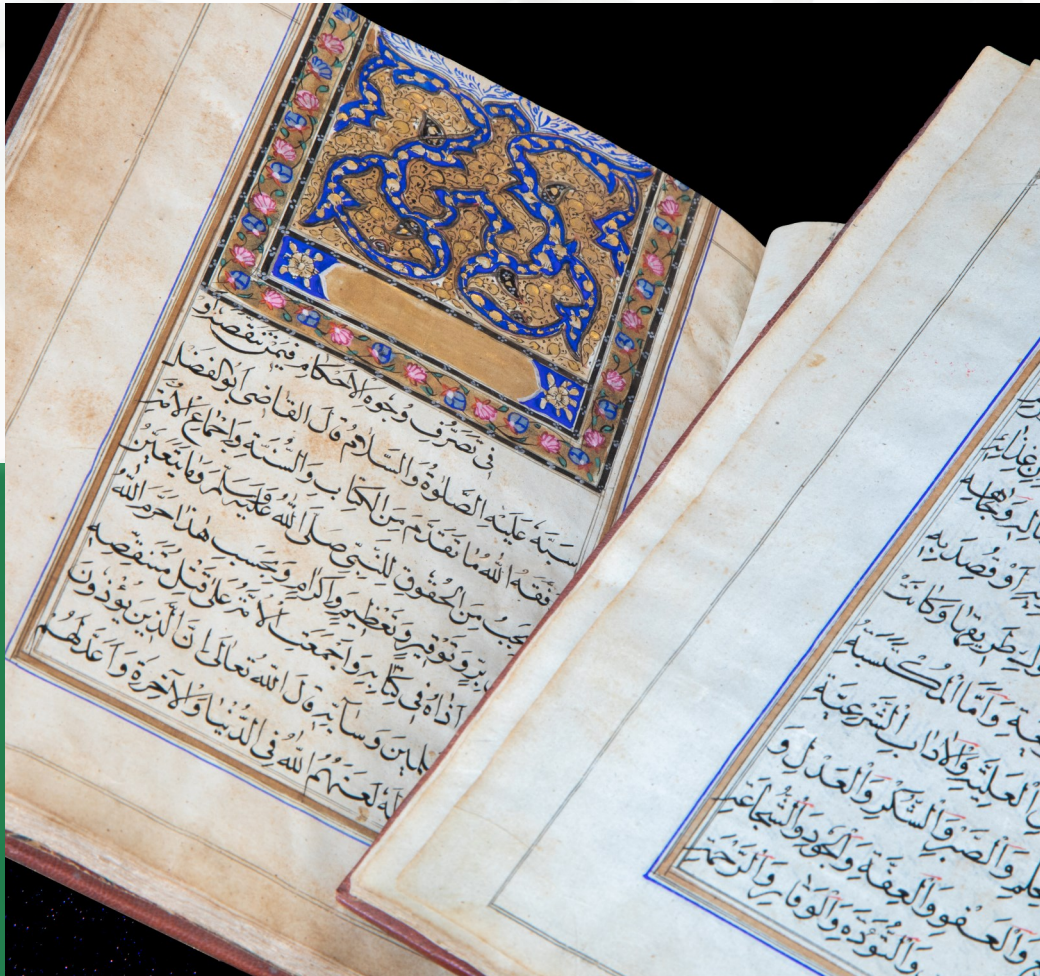 فى تصرف وجوه الاحكام فيمن تنقصه او
سبه عليه الصلوة والسلام قال القاضى ابوالفضل
وفقه الله ما تقدم من الكتاب والسنة واجماع الامة
يجب من الحقوق للنبى صلى الله عليه وسلم وما يتعين
بر وتوقير وتعظيم واكرام وبحسب هذا حرم الله
اذاه فى كتابه واجمعت الامة على قتل متنقصه
وسابه قال الله تعالى ان الذين يؤذون
لعنهم الله فى الدنيا والاخرة واعد لهم
غذائه
وجماله
اوقصد به
طريقها وكانت
واما المكتسبة
العلية والاداب الشرعية
والصبر والشكر والعدل و
والعفو والعفة والجود والشجاعة
والتؤده والوقار والرحمة